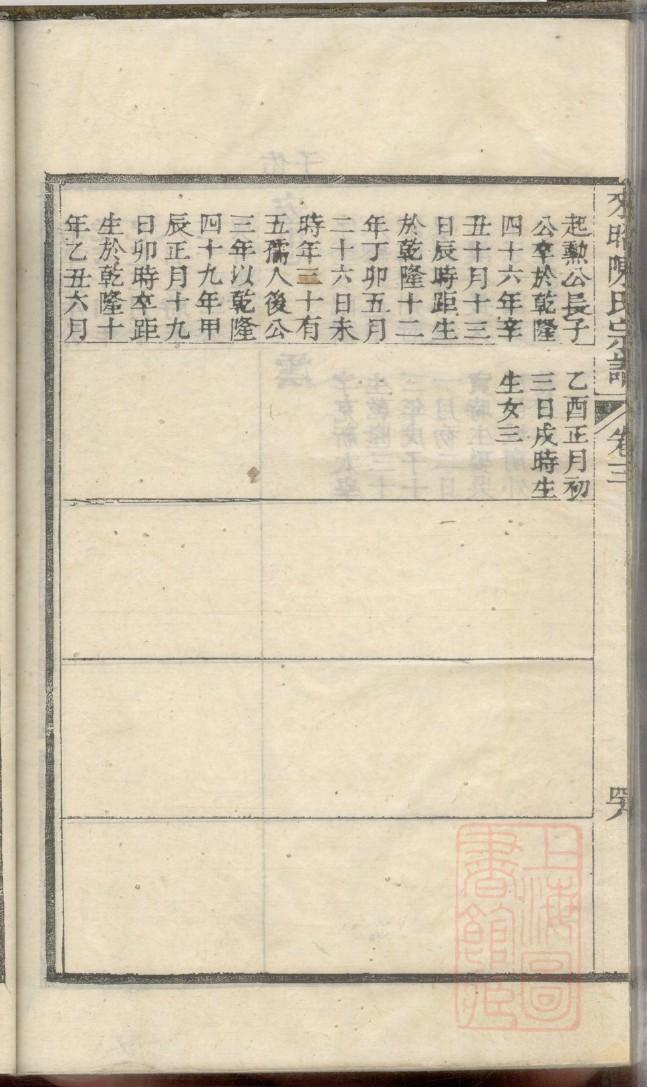 陳氏宗譜
卷三
起勳公長子
公卒於乾隆
四十六年辛
丑十月十三
日辰時距生
於乾隆十二
年丁卯五月
二十六日未
時年三十有
五孺人後公
三年以乾隆
四十九年甲
辰正月十九
日卯時卒距
生於乾隆十
年乙丑六月
乙酉正月初
三日戌時生
生女三
上海圖
書館藏